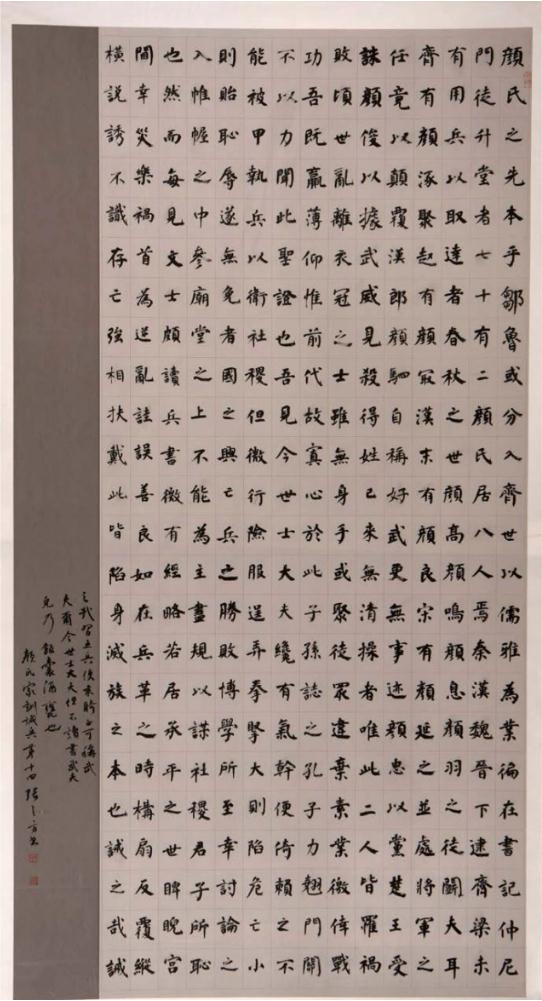 顏氏之先本乎鄒魯或分入齊世以儒雅為業徧在書記仲尼
門徒升堂者七十有二顏氏居八人焉秦漢魏晉下逮齊梁未
有用兵以取達者春秋之世顏高顏鳴顏息顏羽之徒鬬夫耳
齊有顏涿聚趙有顏冣漢末有顏良宋有顏延之並處將軍之
任竟以顛覆漢郎顏駟自稱好武更無事迹顏忠以黨楚王受
誅顏俊以據武威見殺得姓已來無清操者唯此二人皆罹禍
敗頃世亂離衣冠之士雖無身手或聚徒眾違棄素業徼倖戰
功吾既羸薄仰惟前代故寘心於此子孫誌之孔子力翹門關
不以力聞此聖證也吾見今世士大夫纔有氣幹便倚賴之不
能被甲執兵以衛社稷但微行險服逞弄拳掔大則陷危亡小
則貽恥辱遂無免者國之興亡兵之勝敗博學所至幸討論之
入帷幄之中參廟堂之上不能為主盡規以謀社稷君子所恥
也然而每見文士頗讀兵書微有經略若居承平之世睥睨宮
間幸災樂禍首為逆亂詿誤善良如在兵革之時構扇反覆縱
橫說誘不識存亡強相扶戴此皆陷身滅族之本也誡之哉誡
之哉習五兵便乘騎正可稱武
夫爾今世士大夫但不讀書武夫
兒乃飯囊酒甕也
顏氏家訓誡兵第十四